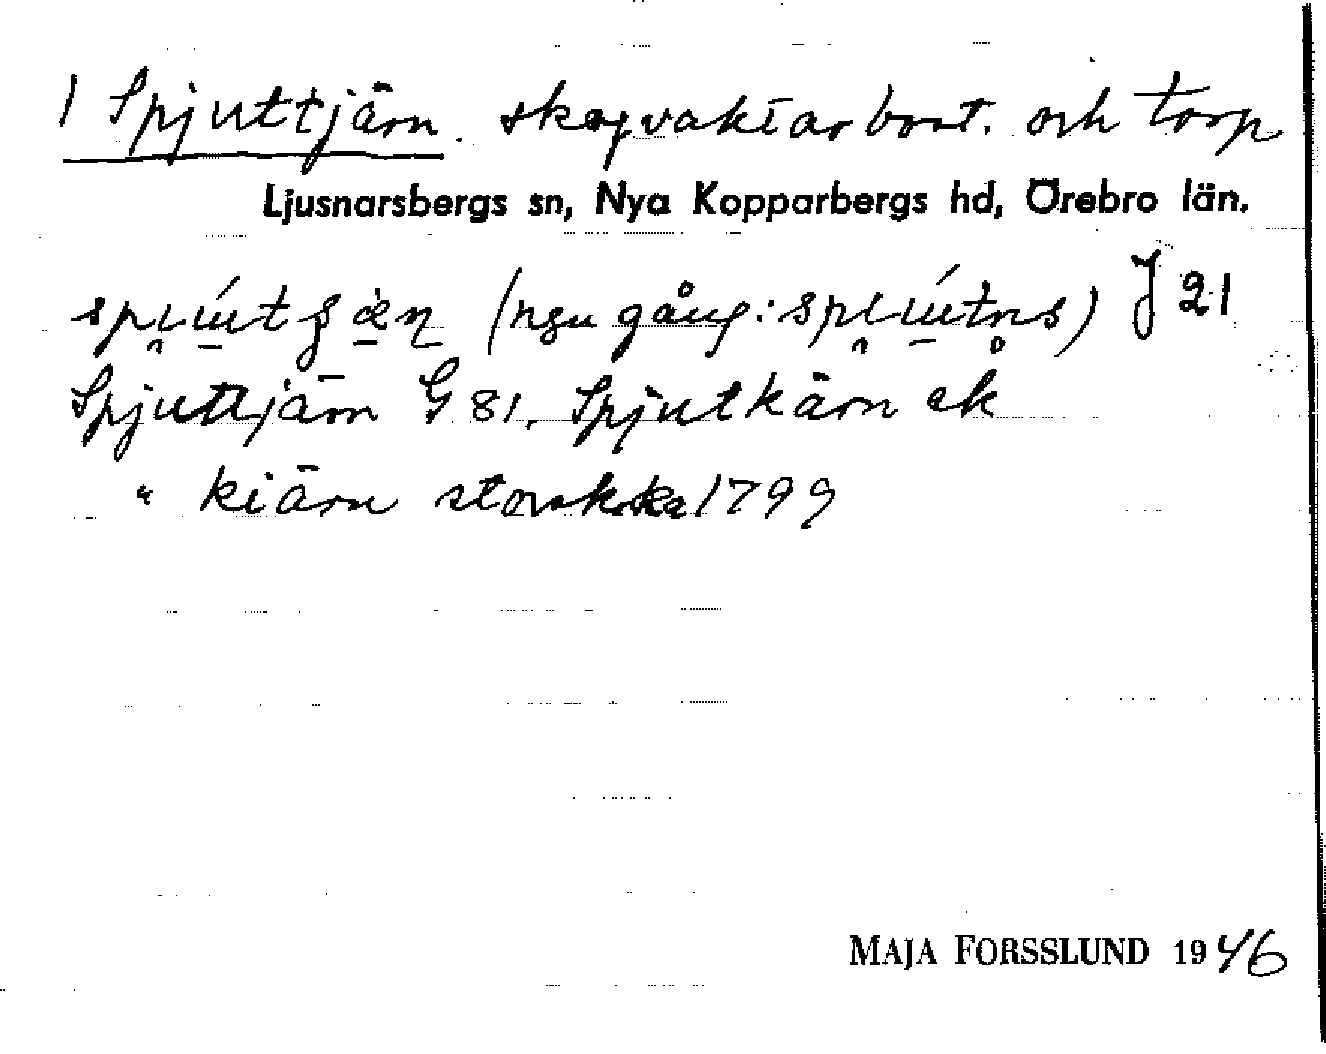 1 Spjuttjärn. skogvaktarbost. och torp
Ljusnarsbergs sn, Nya Kopparbergs hd, Örebro län.
(ngn gång: J 21
Spjuttjärn G 81, Spjutkärn ek
" kiärn storsk.ka 1799
MAJA FORSSLUND 1946